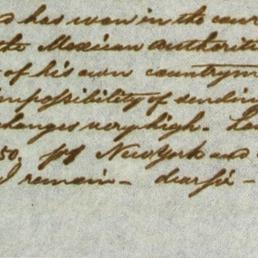 has won in the cour
the Mexican Authoritie
of his own countrym
impossibility of sending
changes very high. La
50. New York and
I remain - dear sir -